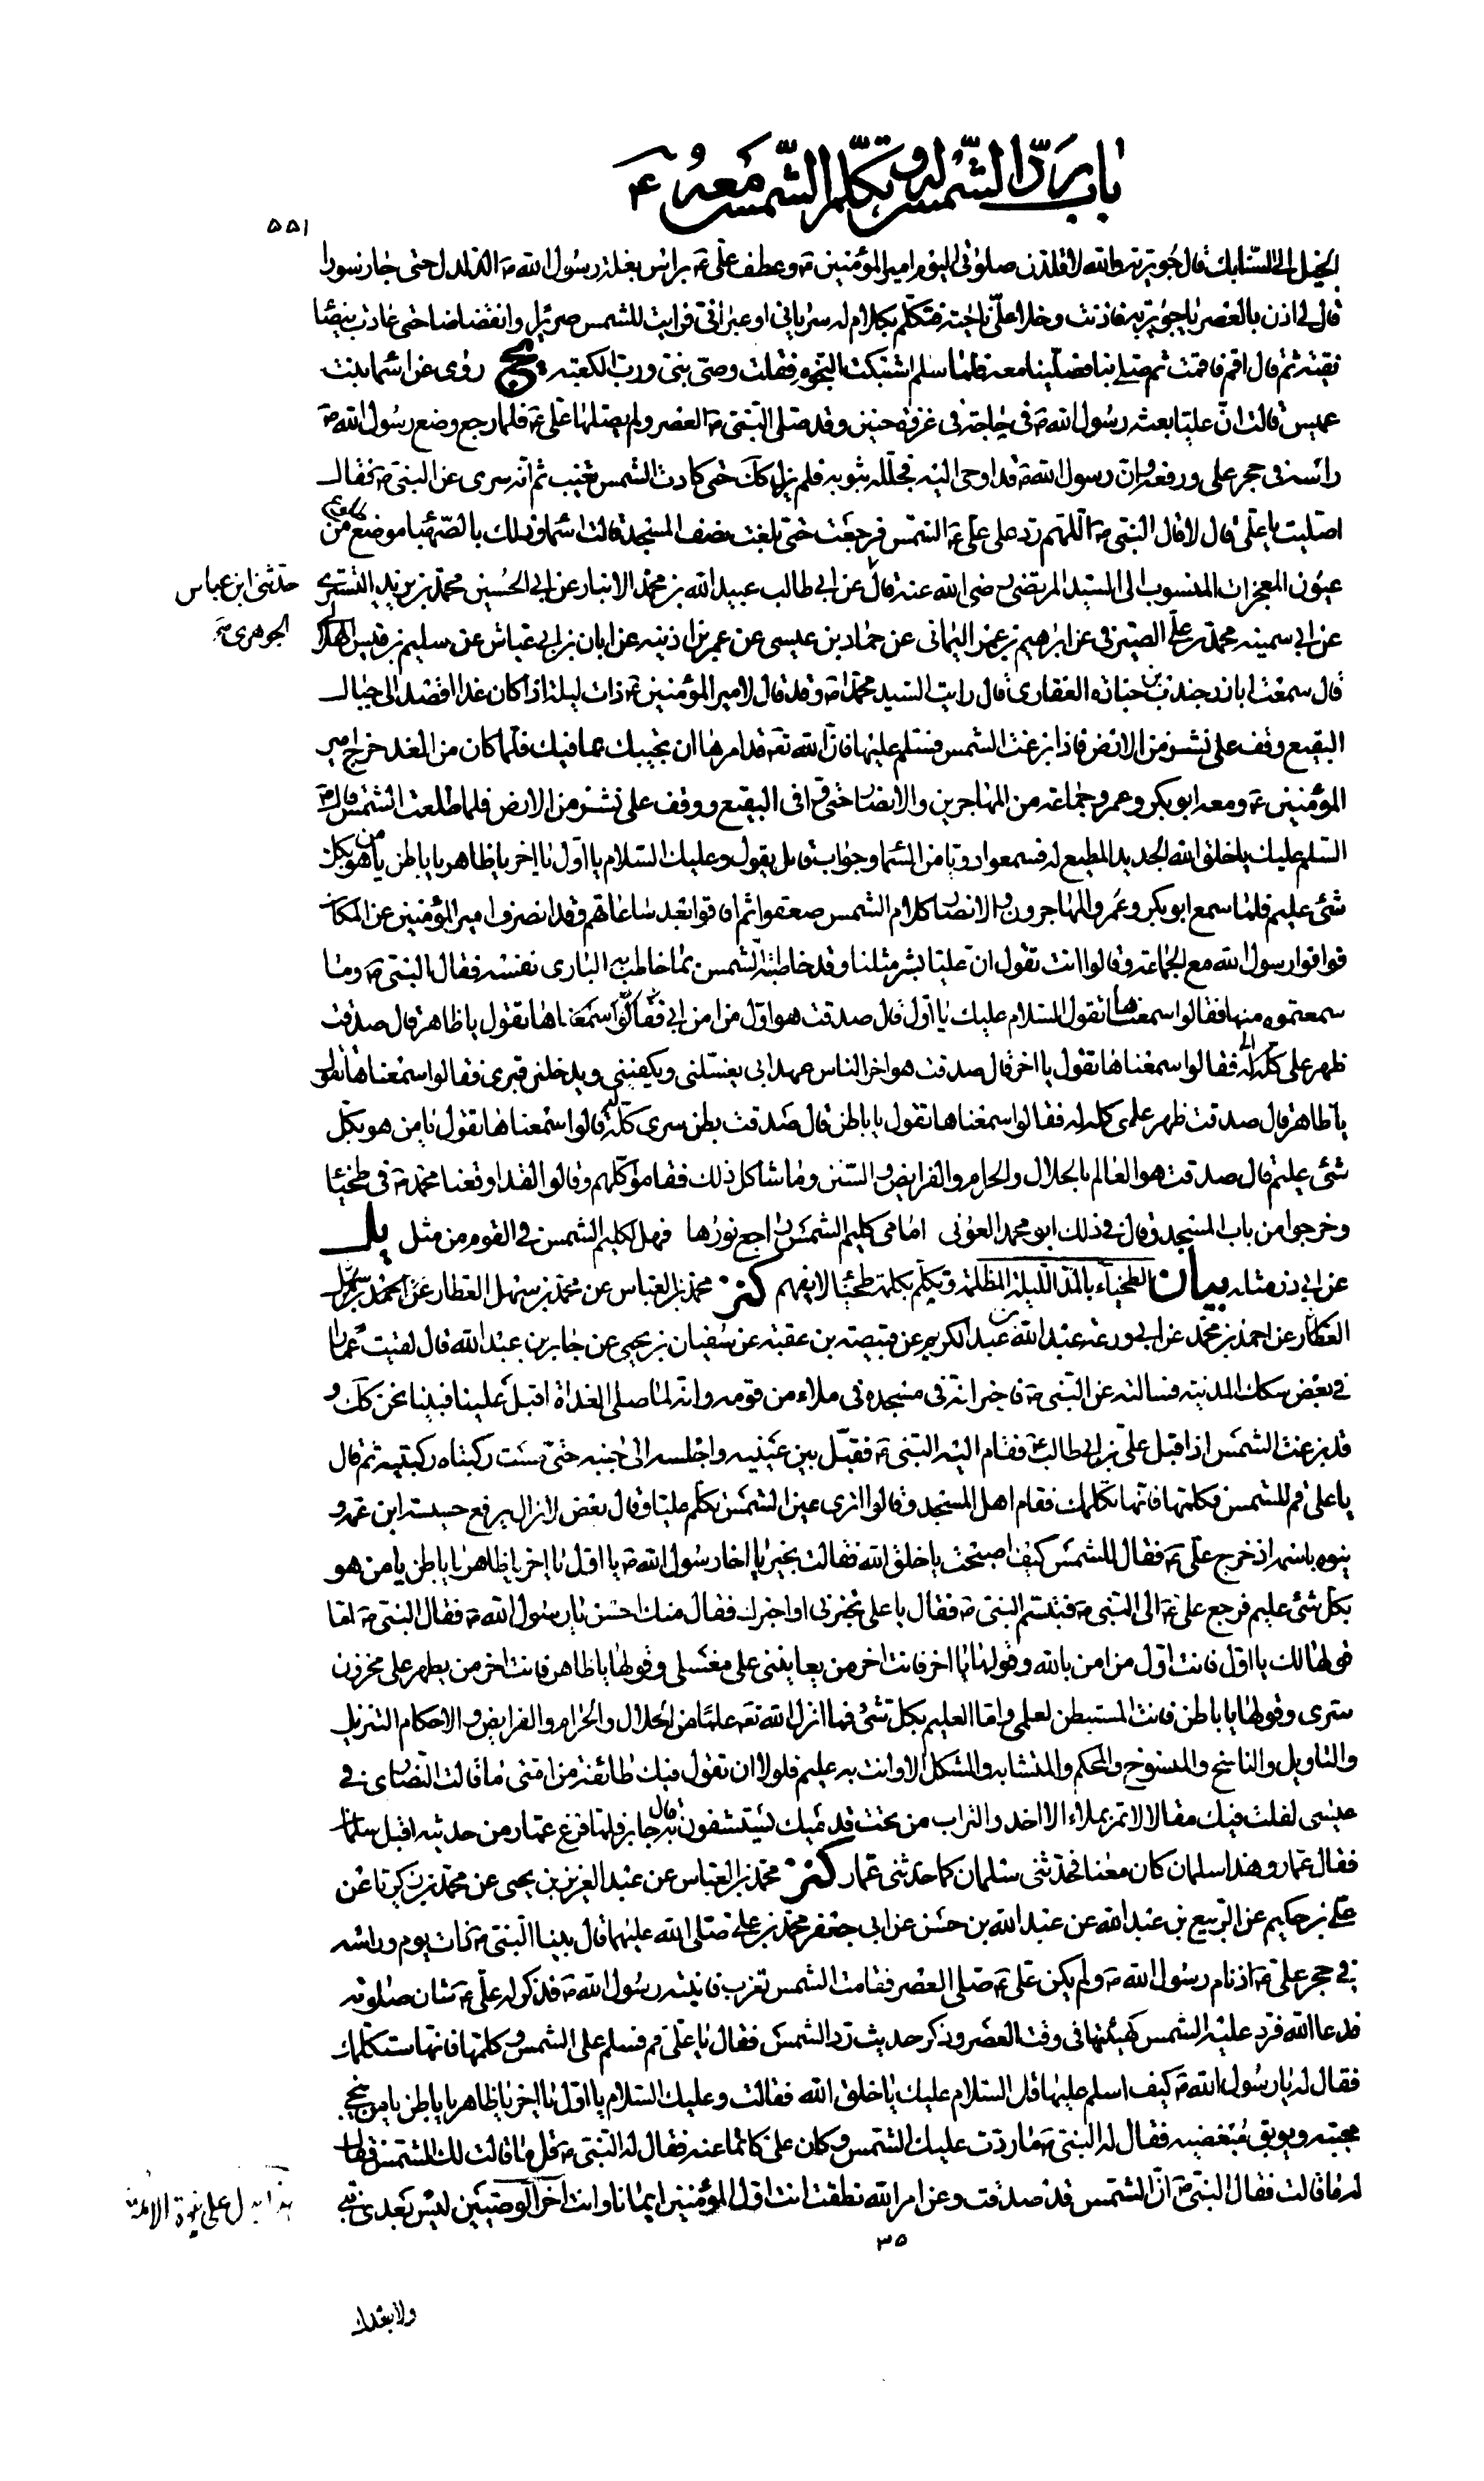 باب ردّ الشّمس له و تكلّم الشّمس معه ع
٥٥١
الخيل الى السنابك قال جويرية والله لاقلدن صلوتى اليوم امير المؤمنين ع و عطف علىّ ع براس بغلة رسول الله ص الدلدل حتى جاز سورا
قال لى اذن بالعصر يا جويرية فاذنت وخلا علىّ ناحية فتكلّم بكلام له سريانى او عبرانى فرايت للشمس صريرا وانقضاضا حتى عادت بيضاء
نقيّة ثم قال اقم فاقمت ثم صلى بنا فصلّينا معه فلما سلم اشتبكت النجوم فقلت وصى نبى ورب الكعبة يج روى عن اسماء بنت
عميس قالت انّ عليا بعثه رسول الله ص فى حاجة فى غزوة حنين وقد صلى النبى ص العصر ولم يصلها علىّ ع فلما رجع وضع رسول الله ص
راسه فى حجر على ورفعه وان رسول الله ص قد اوحى اليه فجلله بثوبه فلم يزل كك حتى كادت الشمس تغيب ثم انه سرى عن النبى ص فقال
اصليت يا علىّ قال لا قال النبى ص اللّهم رد على علىّ ع الشمس فرجعت حتى بلغت نصف المسجد قالت اسماء وذلك بالصهباء موضع من
عيون المعجزات المنسوب الى السيد المرتضى رضى الله عنه قال عن ابى طالب عبيد الله بن محمد الانبارى عن ابى الحسين محمد بن زيد التسترى
حدثنى ابن عباس
الجوهرى
عن ابى سمينه محمد بن على الصيرفى عن ابرهيم بن عمر اليمانى عن حماد بن عيسى عن عمر بن اذينه عن ابان بن ابى عياش عن سليم بن قيس الهلالى
قال سمعت اباذر جندب بن جناده الغفارى قال رايت السيد محمدا ص وقد قال لامير المؤمنين ع ذات ليلة اذا كان غدا اقصد الى جبال
البقيع وقف على نشز من الارض فاذا بزغت الشمس فسلم عليها فان الله تع قد امرها ان تجيبك بما فيك فلما كان من الغد خرج امير
المؤمنين ع ومعه ابو بكر وعمر وجماعة من المهاجرين والانصار حتى وافى البقيع ووقف على نشز من الارض فلما طلعت الشمس قال ع
السلم عليك يا خلق الله الجديد المطيع له فسمعوا دويا من السماء وجواب قايل يقول وعليك السلام يا اول يا اخر يا ظاهر يا باطن يا من هو بكل
شئ عليم فلما سمع ابو بكر وعمر والمهاجرون والانصار كلام الشمس صعقوا ثم افاقوا بعد ساعاتهم وقد انصرف امير المؤمنين عن المكان
فوافوا رسول الله مع الجماعة وقالوا انت تقول ان عليا بشر مثلنا وقد خاطبته الشمس بما خاطب به البارى نفسه فقال النبى ص وما
سمعتموه منها فقالوا سمعناها تقول السلام عليك يا اول قال صدقت هو اول من امن بى فقالوا سمعناها تقول يا ظاهر قال صدقت
ظهر على كله فقالوا سمعناها تقول يا اخر قال صدقت هو اخر الناس عهدا بى يغسلنى ويكفننى ويدخلنى قبرى فقالوا سمعناها تقول
يا ظاهر قال صدقت ظهر علمى كله له فقالوا سمعناها تقول يا باطن قال صدقت بطن سرى كله له قالوا سمعناها تقول يا من هو بكل
شئ عليم قال صدقت هو العالم بالحلال والحرام والفرايض والسنن وما شاكل ذلك فقاموا كلهم وقالوا لقد اوقعنا محمد ص فى طخياء
وخرجوا من باب المسجد وقال فى ذلك ابو محمد العونى امامى كليم الشمس راجع نورها فهل لكليم الشمس فى القوم من مثل يل
عن ابى ذر مثله بيان الطخياء بالمد الليلة المظلمة وتكلم بكلمة طخياء لا يفهم كنز محمد بن العباس عن محمد بن سهل العطار عن احمد بن
العطار عن احمد بن محمد عن ابى زرعة عبد الله بن عبد الكريم عن قبيصة بن عقبة عن سفيان بن يحيى عن جابر بن عبد الله قال لقيت عمارا
فى بعض سكك المدينة فسالته عن النبى ص فاخبر انه فى مسجده فى ملاء من قومه وانه لما صلى الغداة اقبل علينا فبينا نحن كك و
قد بزغت الشمس اذ اقبل علىّ بن ابى طالب ع فقام اليه النبى ص فقبّل بين عينيه واجلسه الى جنبه حتى مست ركبتاه ركبتيه ثم قال
يا على قم للشمس فكلمها فانها تكلمك فقام اهل المسجد وقالوا اترى عين الشمس تكلم عليا وقال بعض لا زال يرفع خسيسة ابن عمه و
ينوه باسمه اذ خرج على ع فقال للشمس كيف اصبحت يا خلق الله فقالت بخير يا اخا رسول الله ص يا اول يا اخر يا ظاهر يا باطن يا من هو
بكل شئ عليم فرجع على ع الى النبى ص فتبسم النبى ص فقال يا على تخبرنى او اخبرك فقال منك احسن يا رسول الله ص فقال النبى ص اما
قولها لك يا اول فانت اول من امن بالله وقولها يا اخر فانت اخر من يعاينى على مغتسلى وقولها يا ظاهر فانت اخر من يظهر على مخزون
سرى وقولها يا باطن فانت المستبطن لعلمى واما العليم بكل شئ فما انزل الله تع علما من الحلال والحرام والفرايض والاحكام والتنزيل
والتاويل والناسخ والمنسوخ والمحكم والمتشابه والمشكل الا وانت به عليم فلولا ان تقول فيك طائفة من امتى ما قالت النصارى فى
عيسى لقلت فيك مقالا لا تمر بملاء الا اخذوا التراب من تحت قدميك يستشفون به قال جابر فلما فرغ عمار من حديثه اقبل سلمان
فقال عمار وهذا سلمان كان معنا فحدثنى سلمان كما حدثنى عمار كنز محمد بن العباس عن عبد العزيز بن يحيى عن محمد بن زكريا عن
على بن حكيم عن الربيع بن عبد الله عن عبد الله بن حسن عن ابى جعفر محمد بن على صلى الله عليهما قال بينا النبى ص ذات يوم وراسه
فى حجر على ع اذ نام رسول الله ص ولم يكن على ع صلى العصر فقامت الشمس تغرب فانتبه رسول الله ص فذكر له علىّ ع شان صلوته
فدعا الله فرد عليه الشمس كهيئتها فى وقت العصر وذكر حديث رد الشمس فقال يا علىّ قم فسلم على الشمس وكلمها فانها ستكلمك
فقال له يا رسول الله ص كيف اسلم عليها قال قل السلام عليك يا خلق الله فقالت وعليك السلام يا اول يا اخر يا ظاهر يا باطن يا من ينجى
محبيه ويوبق مبغضيه فقال له النبى ص ما ردت عليك الشمس وكان على كاتما عنه فقال له النبى ص قل ما قالت لك الشمس فقال
له ما قالت فقال النبى ص انّ الشمس قد صدقت وعن امر الله نطقت انت اول المؤمنين ايمانا وانت اخر الوصيين ليس بعدى نبى
على نبوة الائمة
٣٥
ولا بعدك